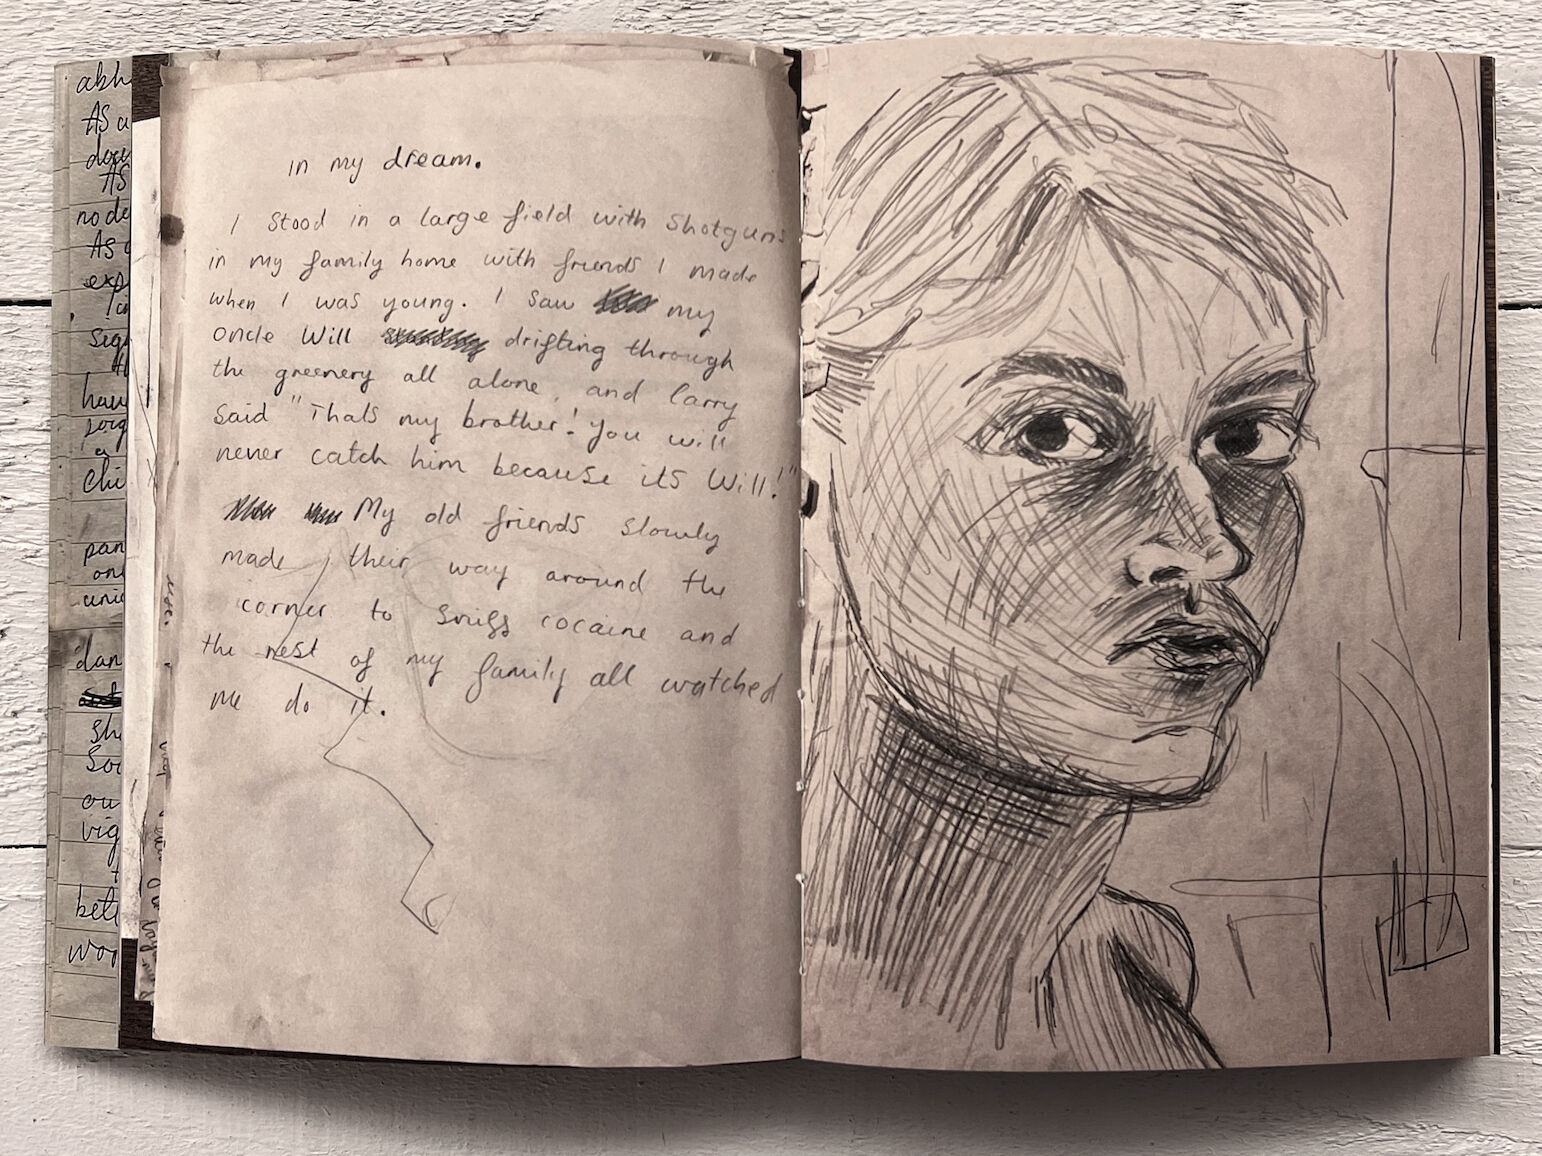 abh
As a
docu
As
no de
As a
exp
sig
hav
a
chi
pan
on
unic
dan
sh
So
ou
vig
bet
wor
in my dream.
I stood in a large field with shotguns
in my family home with friends I made
when I was young. I saw my
oncle Will drifting through
the greenery all alone, and larry
said "Thats my brother! you will
never catch him because its Will!"
My old friends slowly
made their way around the
corner to sniff cocaine and
the rest of my family all watched
me do it.